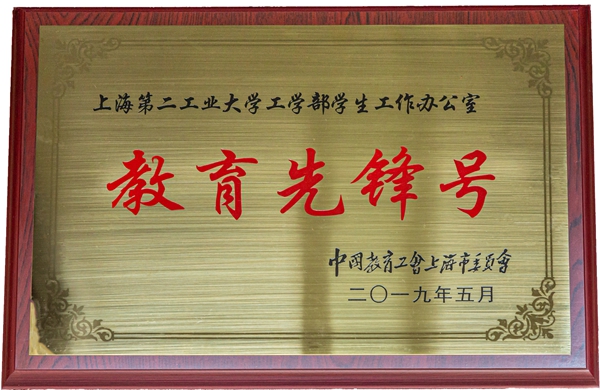 上海第二工业大学工学部学生工作办公室
教育先锋号
中国教育工会上海市委员会
二〇一九年五月